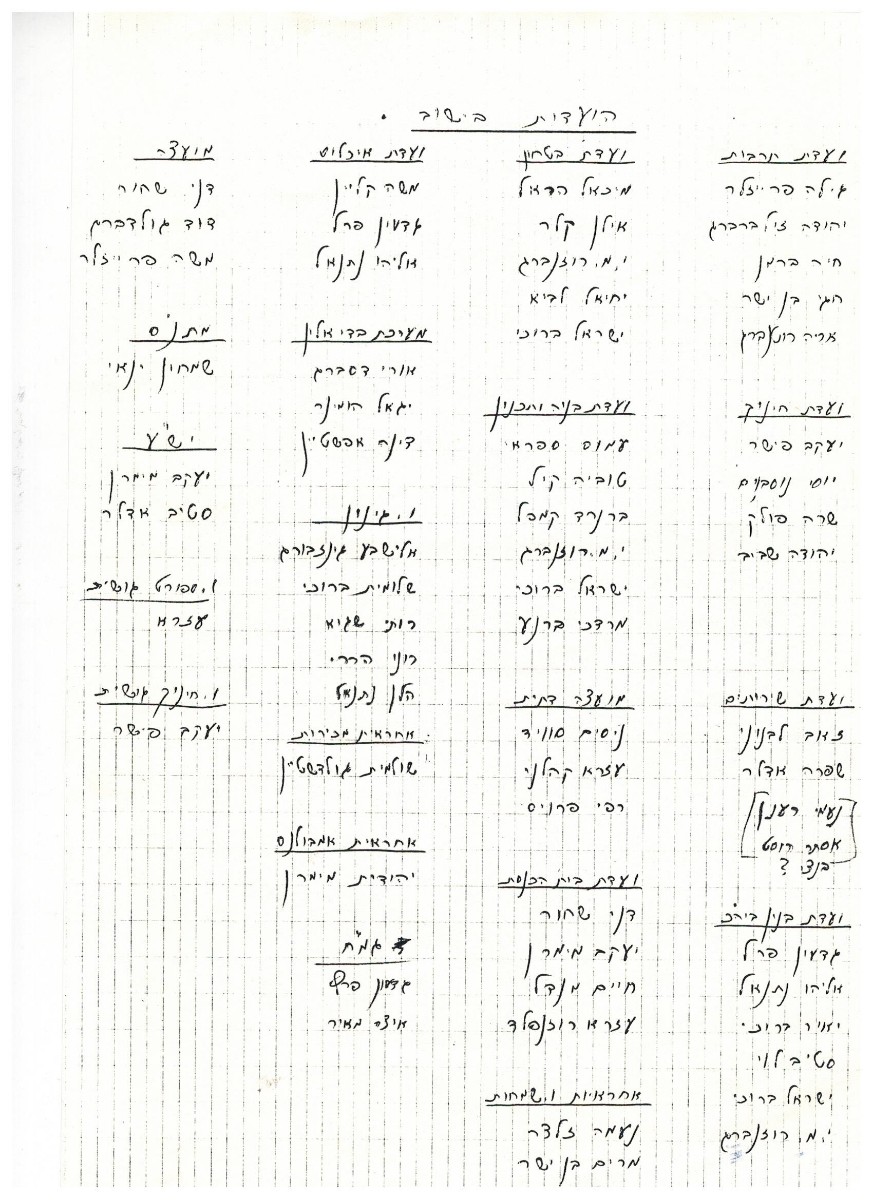 הועדות בישוב.
ועדת תרבות
גילה פרייזלר
יהודה זילברברג
חיה ברמן
חגי בן ישר
אריה רוטנברג
ועדת חינוך
יעקב פישר
יוסי נוסבוים
שרה פולק
יהודה שביב
ועדת שירותים
זאב לבנוני
שפרה אדלר
נעמי רענן
אסתר רוסט
בנצי ?
ועדת בנין ביהכ"נ
גדעון פרל
אליהו נתנאל
יאיר ברוכי
סטיב לוי
ישראל ברוכי
י.מ. רוזנברג
ועדת בטחון
מיכאל הראל
אילן קלר
י.מ. רוזנברג
יחיאל לביא
ישראל ברוכי
ועדת בניה ותכנון
עמוס ספראי
טוביה קיל
ברנרד קמפל
י.מ. רוזנברג
ישראל ברוכי
מרדכי ברנע
מועצה דתית
ניסים סוויד
עזרא קהלני
רפי פרניס
ועדת בית הכנסת
דני שחור
יעקב מימרן
חיים מנדל
עזרא רוזנפלד
אחראיות ו.שמחות
נעמה זלצר
מרים בן ישר
ועדת איכלוס
משה קליין
גדעון פרל
אליהו נתנאל
מערכת בדי אלון
אורי דסברג
יגאל הומינר
דינה אפשטיין
ו.גינון
אלישבע גינזבורג
שלומית ברוכי
רותי שגיא
רוני הררי
הלן נתנאל
אחראית מכירות
שולמית גולדשטיין
אחראית אמבולנס
יהודית מימרן
גמ"ח
גדעון פרל
איצה מאיר
מועצה
דני שחור
דוד גולדברג
משה פרייזלר
מתנ"ס
שמחון ינאי
יש"ע
יעקב מימרן
סטיב אדלר
ו.ספורט גושית
עזרא
ו.חינוך גושית
יעקב פישר